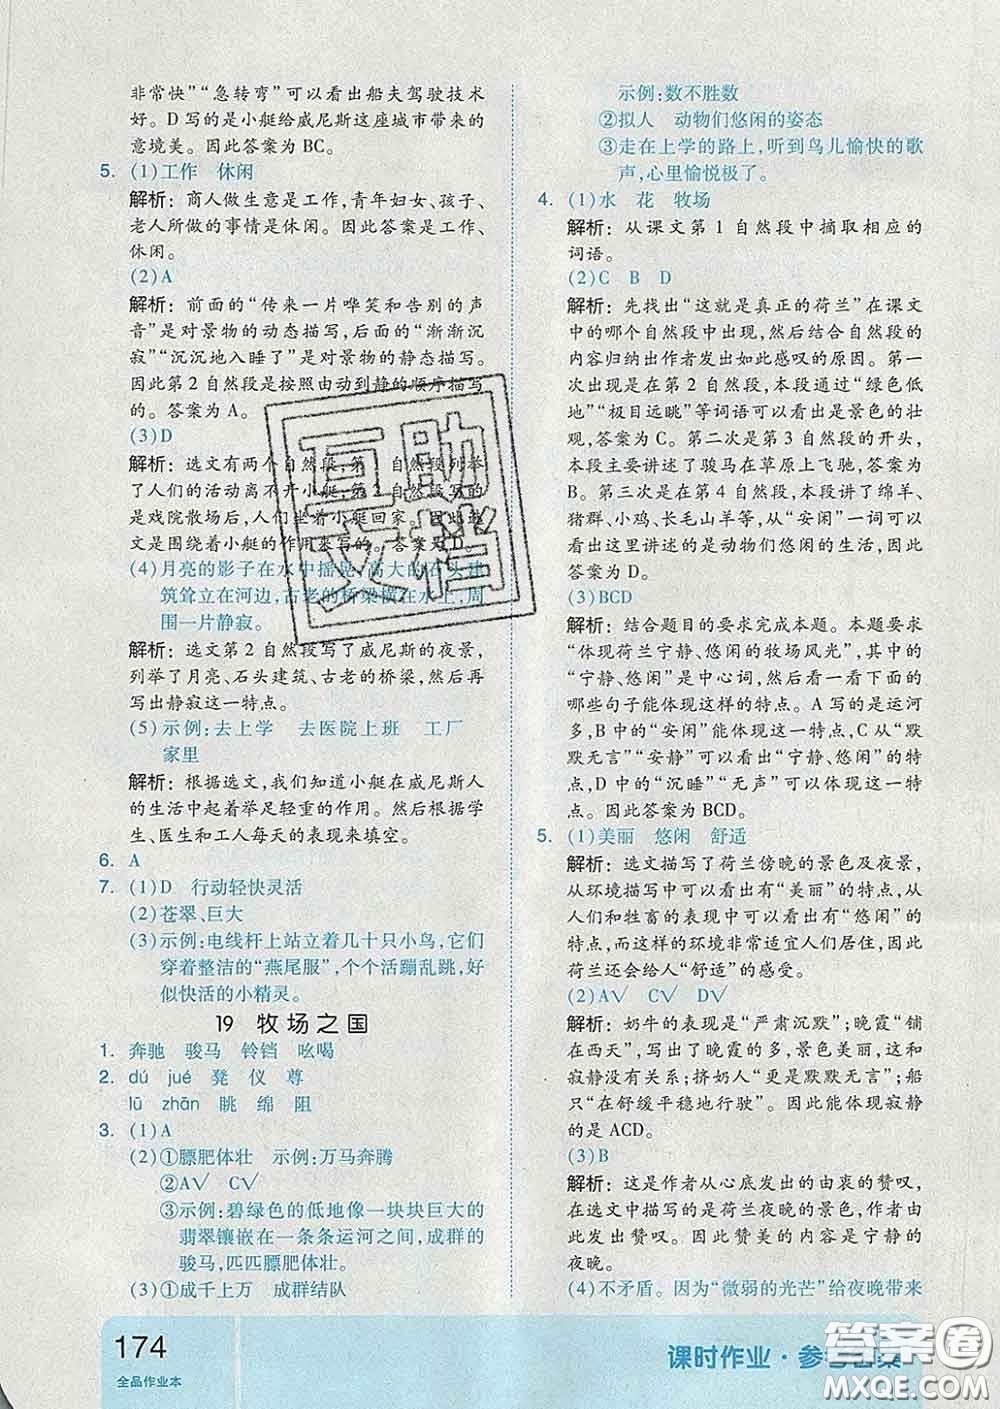 非常快”“急转弯”可以看出船夫驾驶技术
好。D 写的是小艇给威尼斯这座城市带来的
意境美。因此答案为 BC。
5. (1)工作　休闲
解析：商人做生意是工作,青年妇女、孩子、
老人所做的事情是休闲。因此答案是工作、
休闲。
(2)A
解析：前面的“传来一片哗笑和告别的声
音”是对景物的动态描写,后面的“渐渐沉
寂”“沉沉地入睡了”是对景物的静态描写。
因此第 2 自然段是按照由动到静的顺序描写
的。答案为 A。
(3)D
解析：选文有两个自然段,第 1 自然段列举
了人们的活动离不开小艇,第 2 自然段写的
是戏院散场后,人们坐着小艇回家。因此选
文是围绕着小艇的作用来写的。答案是 D。
(4)月亮的影子在水中摇晃,高大的石头建
筑耸立在河边,古老的桥梁横在水上,周
围一片静寂。
解析：选文第 2 自然段写了威尼斯的夜景,
列举了月亮、石头建筑、古老的桥梁,描
写出静寂这一特点。
(5)示例:去上学　去医院上班　工厂
家里
解析：根据选文,我们知道小艇在威尼斯人
的生活中起着举足轻重的作用。然后根据学
生、医生和工人每天的表现来填空。
6. A
7. (1)D　行动轻快灵活
(2)苍翠、巨大
(3)示例:电线杆上站立着几十只小鸟,它们
穿着整洁的“燕尾服”,个个活蹦乱跳,好
似快活的小精灵。
19　牧场之国
1. 奔驰　骏马　铃铛　吆喝
2. dú　jué　凳　仪　尊
lǜ　zhān　眺　绵　阻
3. (1)A
(2)①膘肥体壮　示例:万马奔腾
②A√　C√
③示例:碧绿色的低地像一块块巨大的
翡翠镶嵌在一条条运河之间,成群的
骏马,匹匹膘肥体壮。
(3)①成千上万　成群结队
示例:数不胜数
②拟人　动物们悠闲的姿态
③走在上学的路上,听到鸟儿愉快的歌
声,心里愉悦极了。
4. (1)水　花　牧场
解析：从课文第 1 自然段中摘取相应的
词语。
(2)C　B　D
解析：先找出“这就是真正的荷兰”在课文
中的哪个自然段中出现,然后结合自然段的
内容归纳出作者发出如此感叹的原因。第一
次出现是在第 2 自然段,本段通过“绿色低
地”“极目远眺”等词语可以看出是景色的壮
观,答案为 C。第二次是第 3 自然段的开头,
本段主要讲述了骏马在草原上飞驰,答案为
B。第三次是在第 4 自然段,本段讲了绵羊、
猪群、小鸡、长毛山羊等,从“安闲”一词可以
看出这里讲述的是动物们悠闲的生活,因此
答案为 D。
(3)BCD
解析：结合题目的要求完成本题。本题要求
“体现荷兰宁静、悠闲的牧场风光”,其中的
“宁静、悠闲”是中心词,然后看一看下面的
哪些句子能体现这样的特点。A 写的是运河
多,B 中的“安闲”能体现这一特点,C 从“默
默无言”“安静”可以看出“宁静、悠闲”的特
点,D 中的“沉睡”“无声”可以体现这一特
点。因此答案为 BCD。
5. (1)美丽　悠闲　舒适
解析：选文描写了荷兰傍晚的景色及夜景,
从环境描写中可以看出有“美丽”的特点,从
人们和牲畜的表现中可以看出有“悠闲”的
特点,而这样的环境非常适宜人们居住,因此
荷兰还会给人“舒适”的感受。
(2)A√　C√　D√
解析：奶牛的表现是“严肃沉默”;晚霞“铺
在西天”,写出了晚霞的多,景色美丽,这和
寂静没有关系;挤奶人“更是默默无言”;船
只“在舒缓平稳地行驶”。因此,能体现寂静
的是 ACD。
(3)B
解析：这是作者从心底发出的由衷的赞叹,
在选文中描写了荷兰夜晚的景色,作者发出
了赞叹。因此赞美的内容是宁静的
夜晚。
(4)不矛盾。因为“微弱的光芒”给夜晚带来
互助
文档
174
全品作业本
课时作业·参考答案
答案圈
MXQE.COM